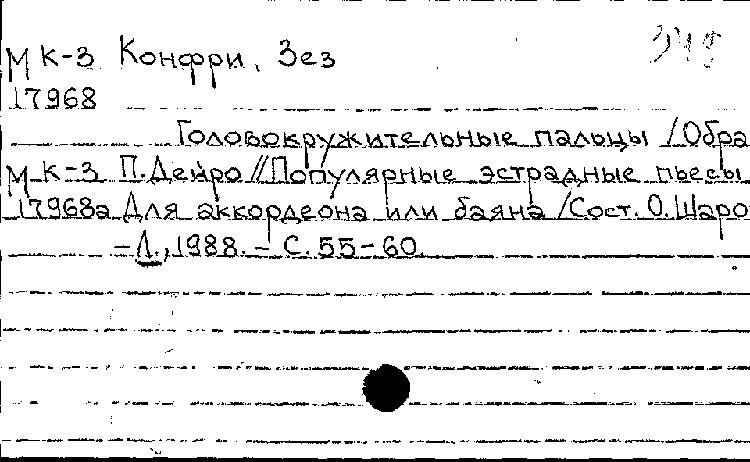 МК-3 Конфри, Зез
17968
Головокружительные пальцы /Обра
МК-3 П.Дейро //Популярные эстрадные пьесы
17968а Для аккордеона или баяна /Сост. О.Шаро
- Л., 1988. - С. 55-60.